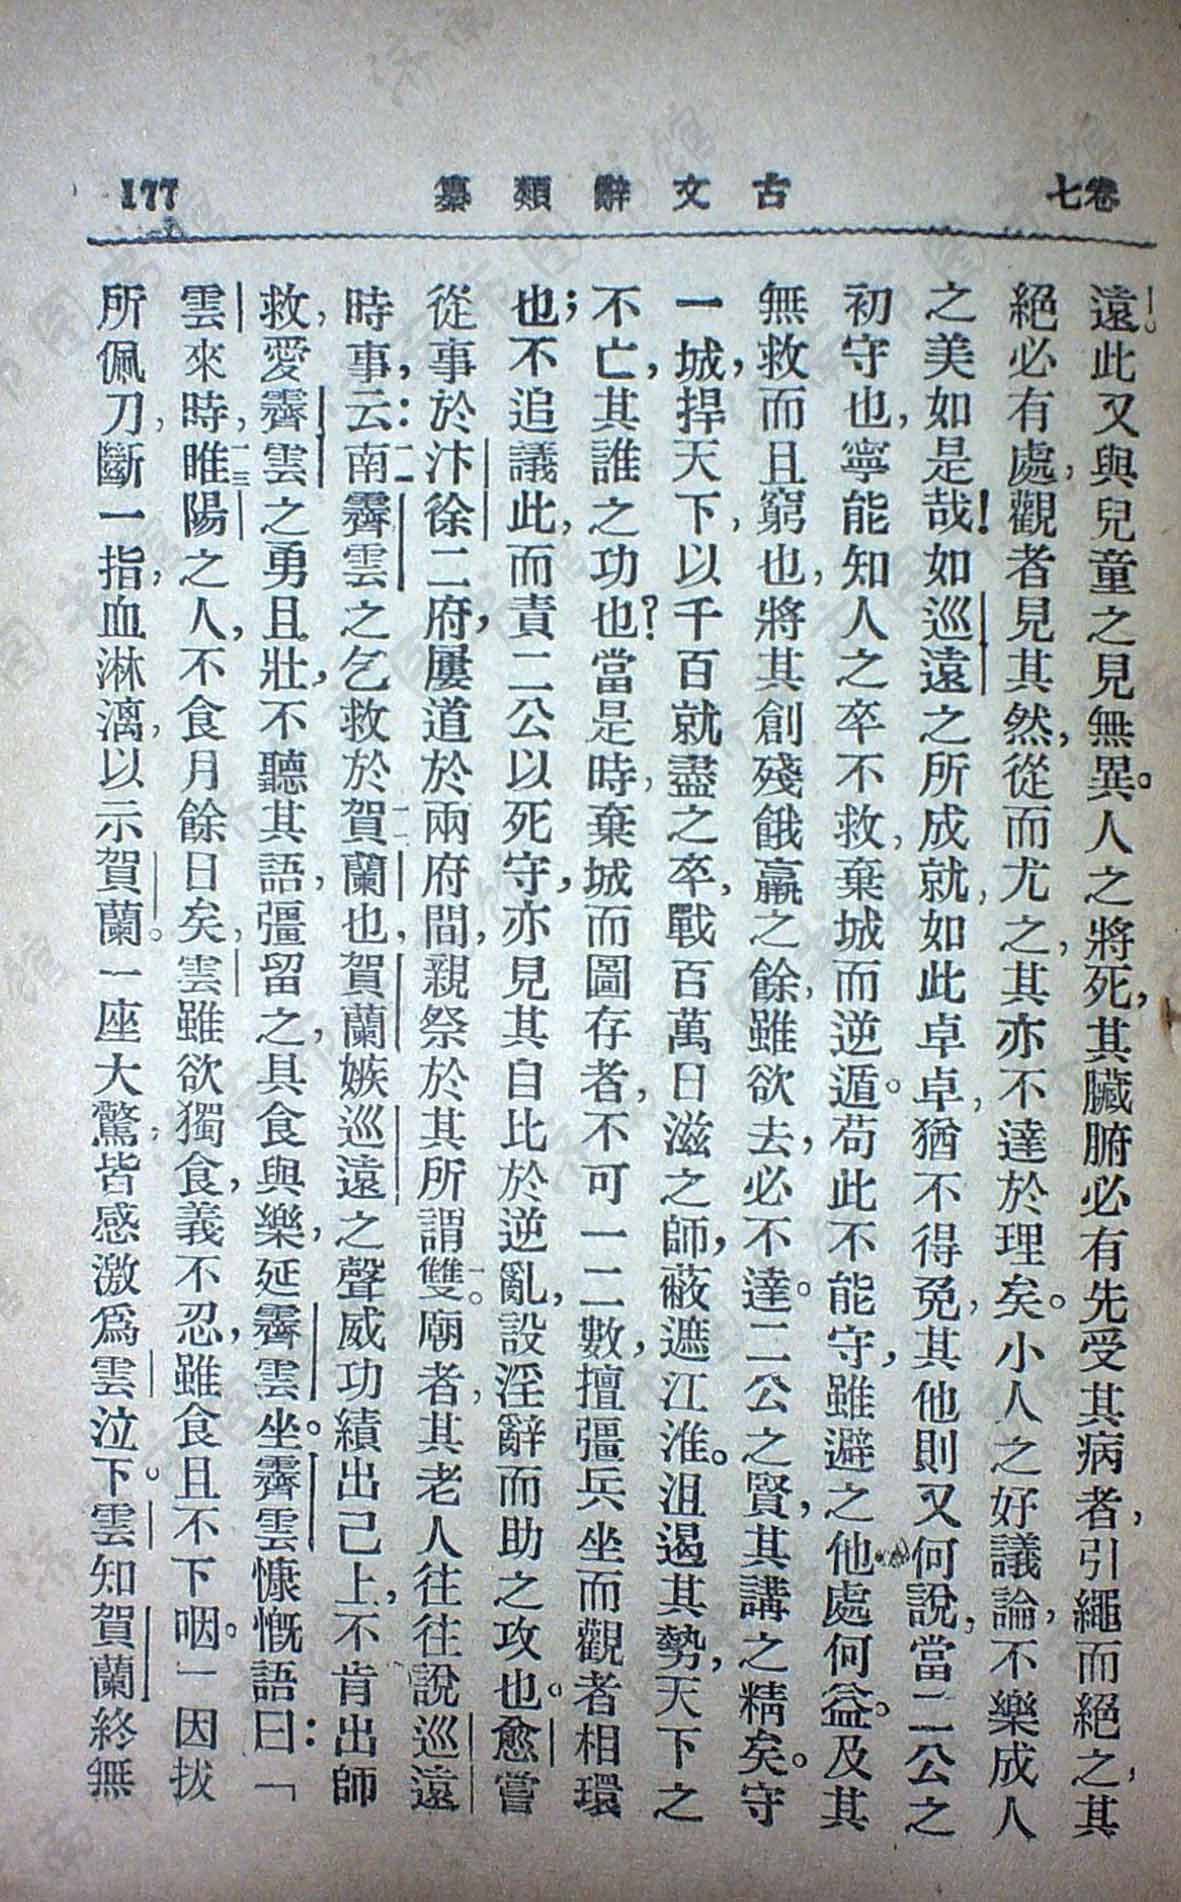 卷七
古文辭類纂
177
遠。此又與兒童之見無異。人之將死，其臟腑必有先受其病者，引繩而絕之，其
絕必有處，觀者見其然，從而尤之，其亦不達於理矣。小人之好議論，不樂成人
之美如是哉！如巡遠之所成就，如此卓卓，猶不得免，其他則又何說，當二公之
初守也，寧能知人之卒不救，棄城而逆遁。苟此不能守，雖避之他處何益。及其
無救而且窮也，將其創殘餓羸之餘，雖欲去，必不達。二公之賢，其講之精矣。守
一城，捍天下，以千百就盡之卒，戰百萬日滋之師，蔽遮江淮。沮遏其勢，天下之
不亡，其誰之功也？當是時，棄城而圖存者，不可一二數，擅彊兵坐而觀者相環
也；不追議此，而責二公以死守，亦見其自比於逆亂，設淫辭而助之攻也。愈嘗
從事於汴徐二府，屢道於兩府間，親祭於其所謂雙廟者，其老人往往說巡遠
時事，云：南霽雲之乞救於賀蘭也，賀蘭嫉巡遠之聲威功績出己上，不肯出師
救，愛霽雲之勇且壯，不聽其語，彊留之，具食與樂，延霽雲坐。霽雲慷慨語曰：「
雲來時，睢陽之人，不食月餘日矣，雲雖欲獨食，義不忍，雖食且不下咽。」因拔
所佩刀，斷一指，血淋漓，以示賀蘭。一座大驚，皆感激爲雲泣下。雲知賀蘭終無